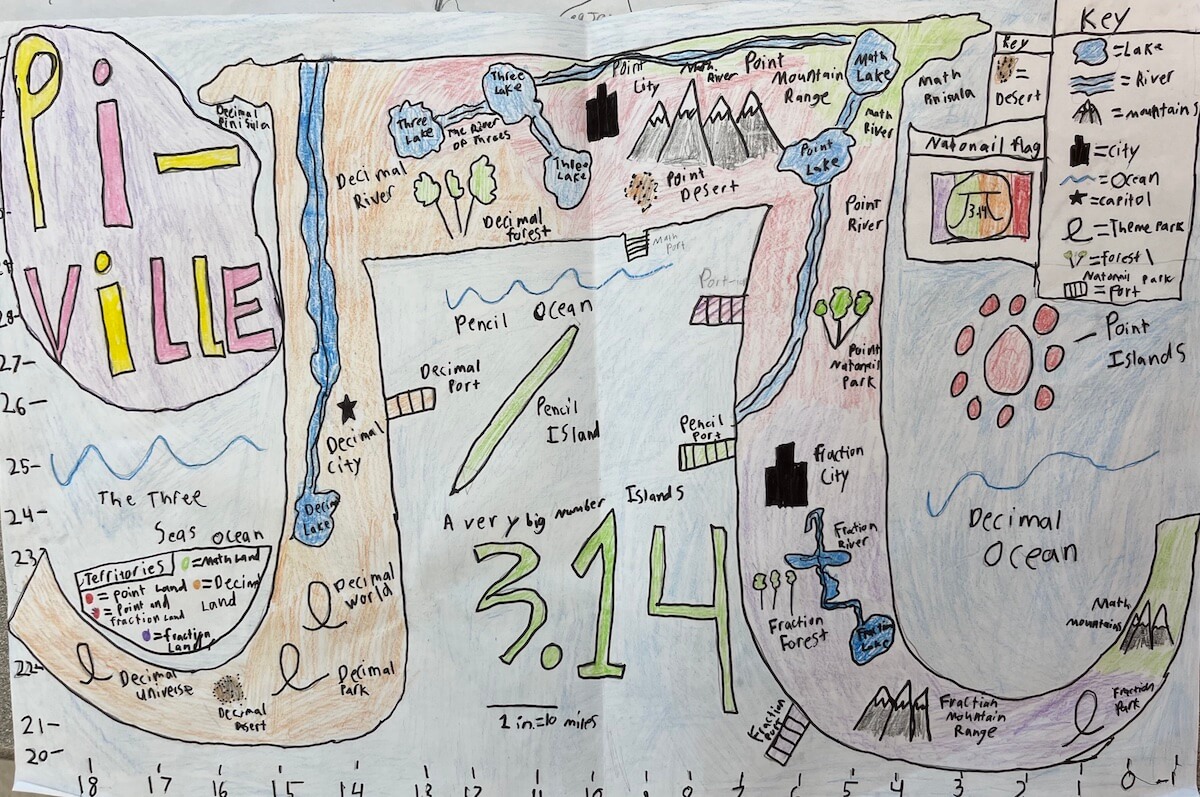 Pi-
ViLLE
Key
= Lake
= River
= mountain
= city
= Ocean
= capitol
= Theme Park
= forest \
Natonail Park
= Port
Key
=
Desert
Natonail flag
π
3.14
Decimal
Pinisula
Three
Lake
Three
Lake
The River
OF Threes
Three
Lake
Point
City
Math
River
Point
Mountain
Range
Math
Lake
Math
Pinisula
Math
River
Point
Lake
Decimal
River
Decimal
forest
Point
Desert
Point
River
Math
Port
Pencil Ocean
Point
Natonail
Park
Point
Islands
Decimal
Port
Pencil
Island
Pencil
Port
Decimal
City
Decimal
Lake
Fraction
City
The Three
Seas Ocean
A very big number Islands
3.14
Decimal
Ocean
Fraction
River
Fraction
Forest
Fraction
Lake
Territories
= Math Land
= Point Land
= Decimal
Land
= Point and
fraction Land
= fraction
Land
Decimal
World
Decimal
Universe
Decimal
Park
Decimal
Desert
1 in.=10 miles
Fraction
Port
Fraction
Mountain
Range
Fraction
Park
Math
mountains
28-
27-
26-
25-
24-
23
22-
21-
20-
18 17 16 15 14 13 12 11 10 9 8 7 6 5 4 3 2 1 0 -1